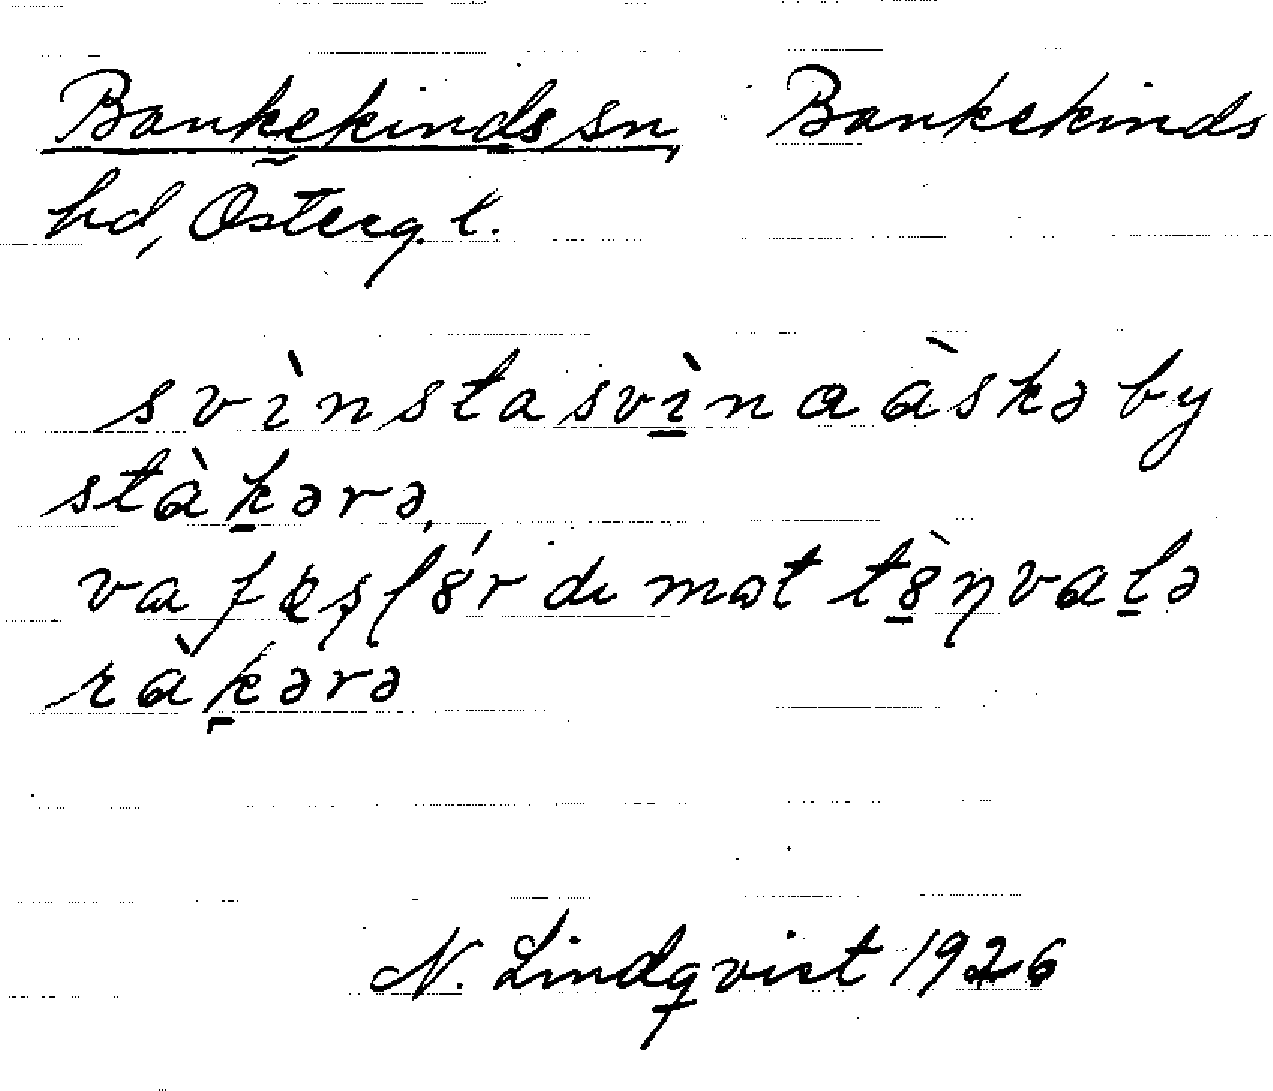 Bankekinds sn, Bankekinds
hd, Österg. l.
svìnsta svìna àskə by
stàkərə,
va fæʂ ſȣ́r dı mat tȣ̀ŋvalə
ràkərə
N. Lindqvist 1926